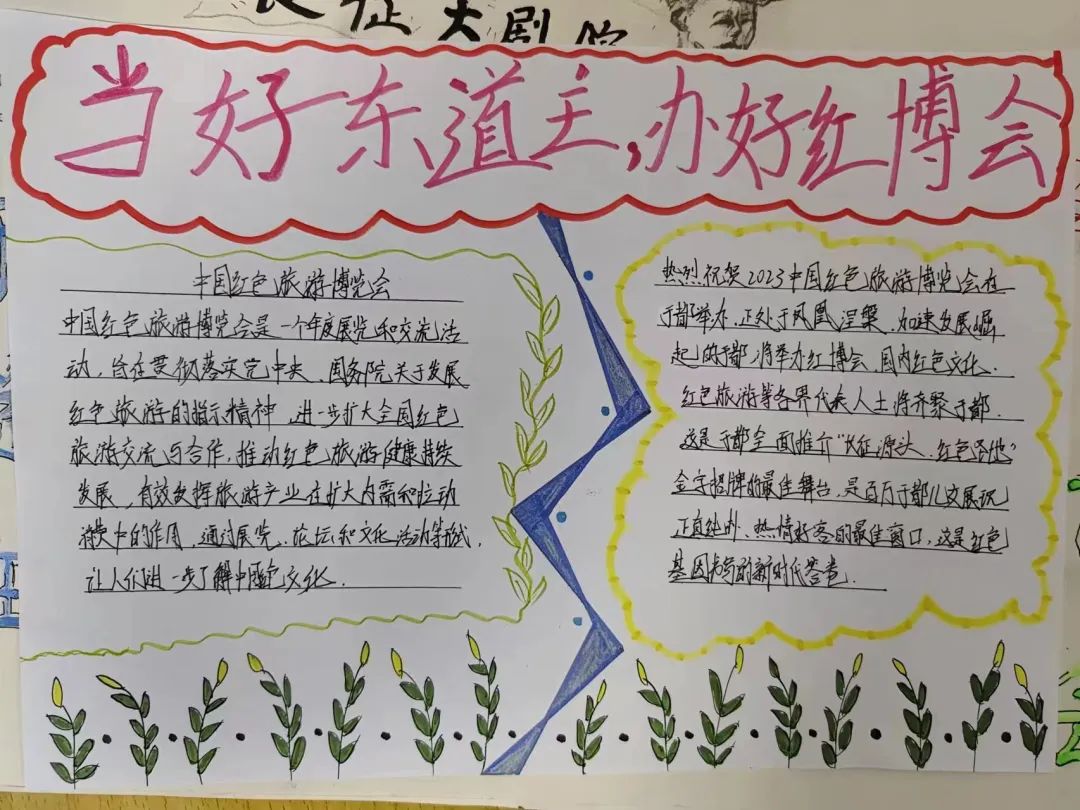 长征大剧院
当好东道主,办好红博会
中国红色旅游博览会
中国红色旅游博览会是一个年度展览和交流活
动,旨在贯彻落实党中央、国务院关于发展
红色旅游的指示精神,进一步扩大全国红色
旅游交流与合作,推动红色旅游健康持续
发展,有效发挥旅游产业在扩大内需和拉动
消费中的作用,通过展览、论坛和文化活动等形式,
让人们进一步了解中国红色文化.
热烈祝贺2023中国红色旅游博览会在
于都举办.正处于凤凰涅槃、加速发展崛
起的于都,将举办红博会,国内红色文化.
红色旅游等各界代表人士将齐聚于都.
这是于都全面推介“长征源头、红色圣地”
金字招牌的最佳舞台,是百万于都儿女展示
正直纯朴、热情好客的最佳窗口,这是红色
基因书写的新时代答卷.